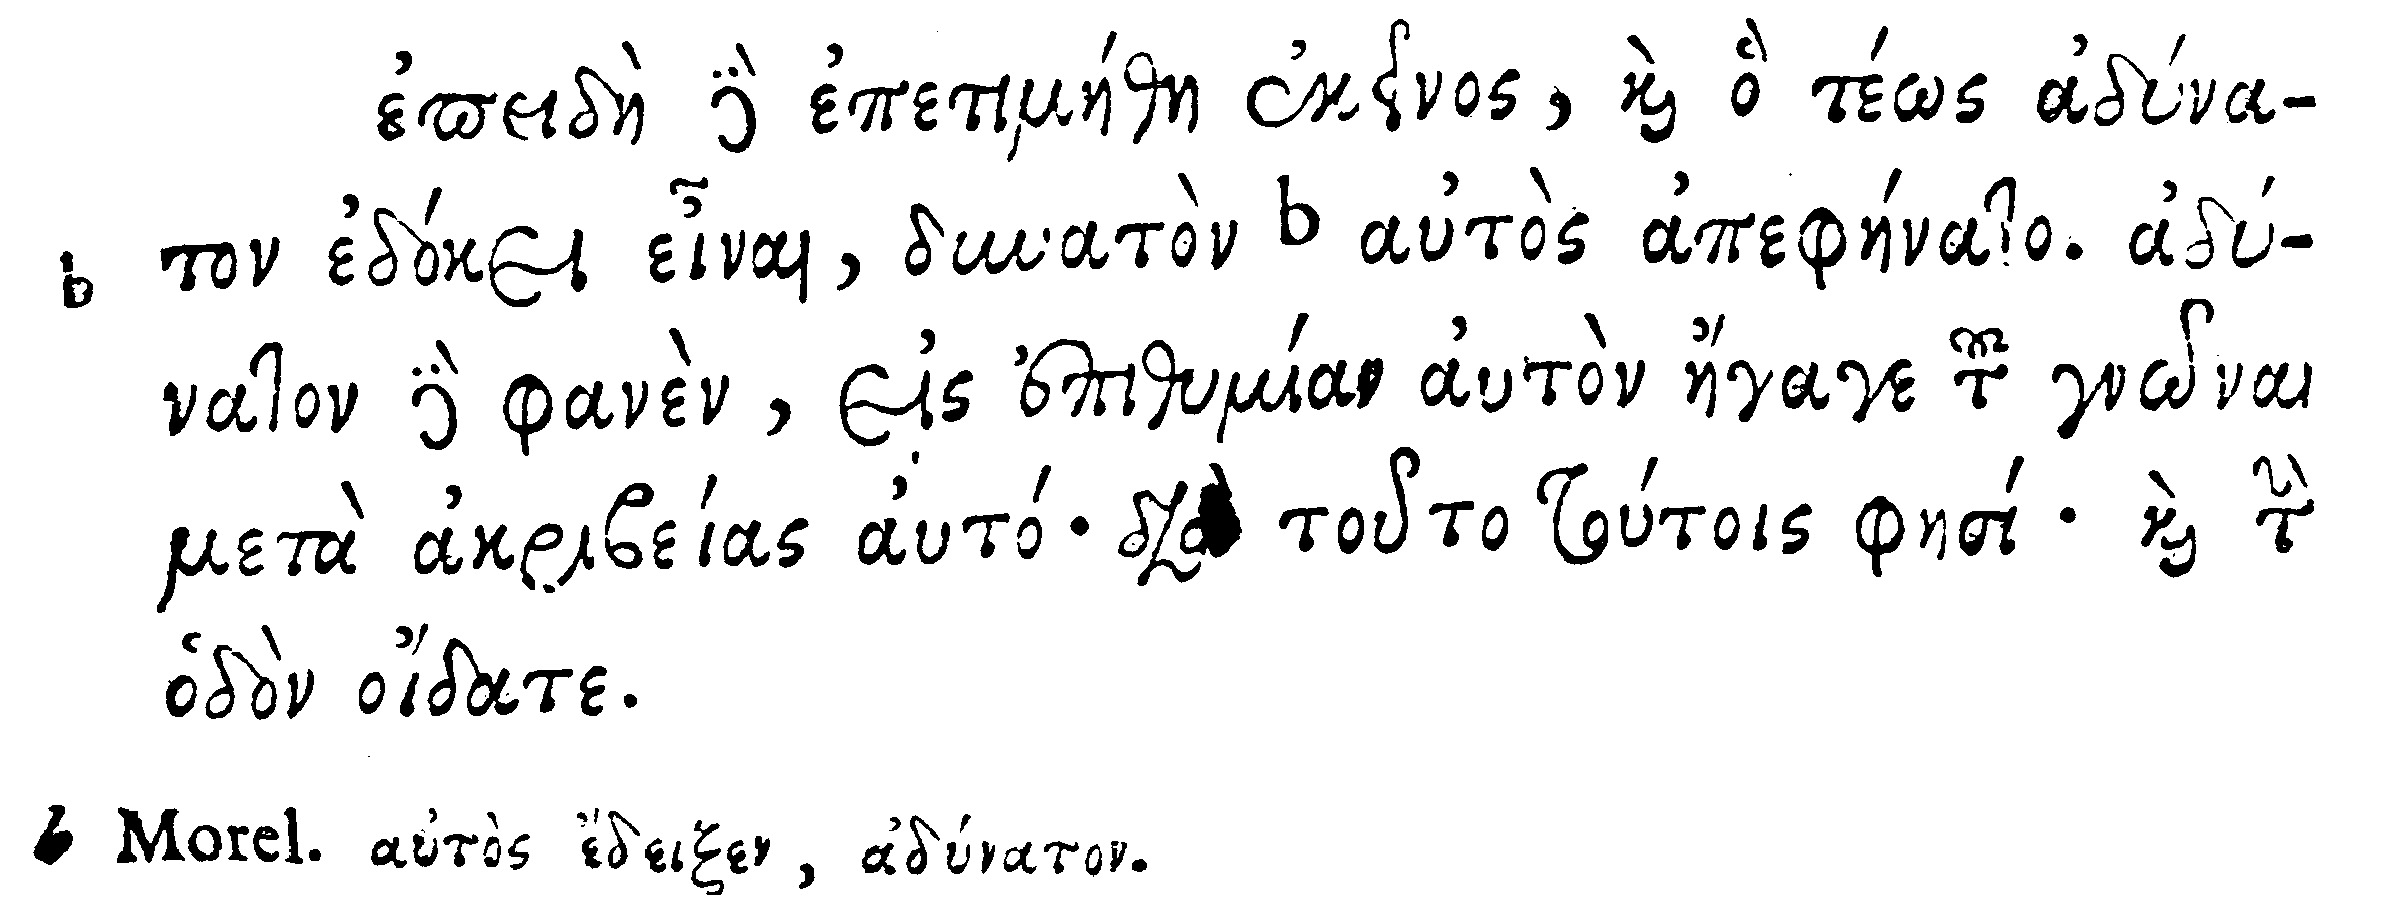 ἐπειδὴ ϳὰρ ἐπετιμήθη ἐκεῖνος, καὶ ὃ τέως ἀδύνα-
b τον ἐδόκει εἶναι, δυνατὸν b αὐτὸς ἀπεφήνατο. ἀδύ-
νατον γὰρ φανὲν, εἰς ἐπιθυμίαν αὐτὸν ἤγαγε τοῦ γνῶναι
μετὰ ἀκριβείας αὐτό· διὰ τοῦτο τούτοις φησί· καὶ τὴν
ὁδὸν οἴδατε.
b Morel. αὐτὸς ἔδειξεν, ἀδύνατον.